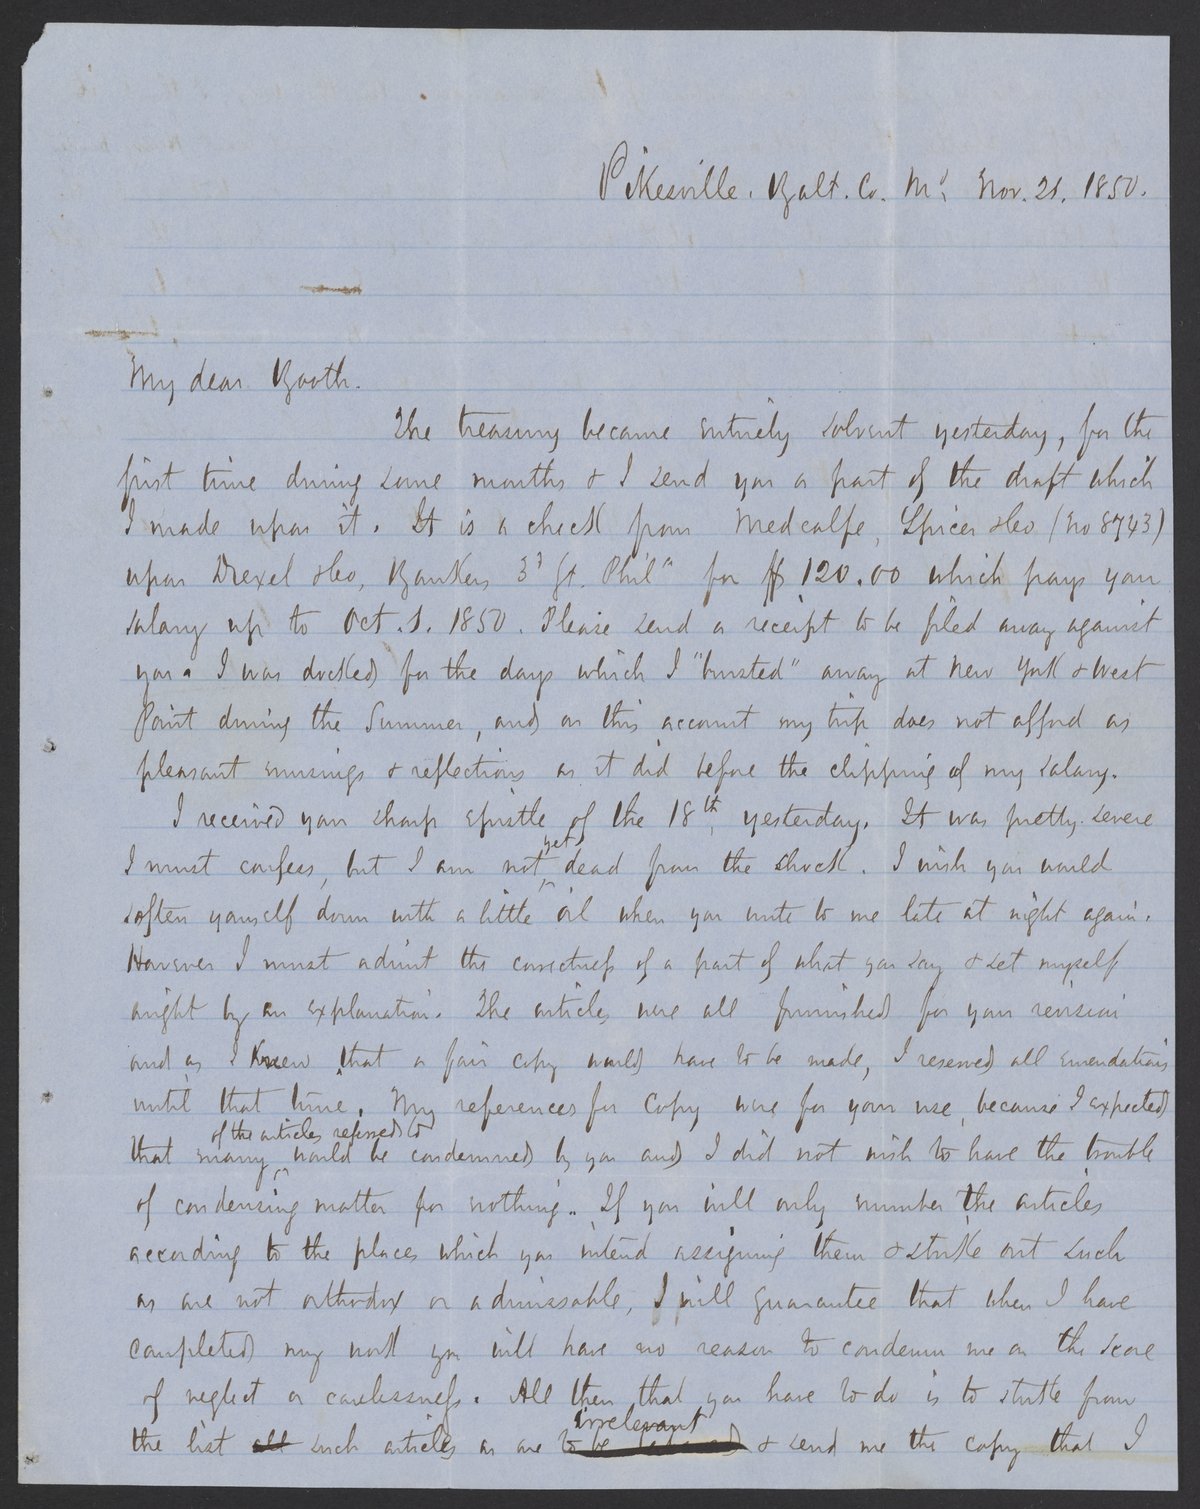 Pikesville. Balt. Co. Md. Nov. 21. 1850.
My dear Booth.
The treasury became entirely solvent yesterday, for the
first time during some months & I send you a part of the draft which
I made upon it. It is a check from Medcalfe, Spicer & Co (No 8743)
upon Drexel & Co, Bankers 3d St. Phila for $120.00 which pays your
salary up to Oct. 1. 1850. Please send a receipt to be filed away against
you. I was docked for the days which I "busted" away at New York & West
Point during the Summer, and on this account my trip does not afford as
pleasant musings & reflections as it did before the clipping of my salary.
I received your sharp epistle of the 18th, yesterday. It was pretty severe
I must confess, but I am not yet dead from the shock. I wish you would
soften yourself down with a little oil when you write to me late at night again.
However I must admit the correctness of a part of what you say & set myself
aright by an explanation. The articles were all furnished for your revision
and as I knew that a fair copy would have to be made, I reserved all emendations
until that time. My references for copy were for your use, because I expected
that many of the articles referred to would be condemned by you and I did not wish to have the trouble
of condensing matter for nothing. If you will only number the articles
according to the places which you intend assigning them & strike out such
as are not orthodox or admissable, I will guarantee that when I have
completed my work you will have no reason to condemn me on the score
of neglect or carelessness. All then that you have to do is to strike from
the list all such articles as are to be irrelevant & send me the copy that I